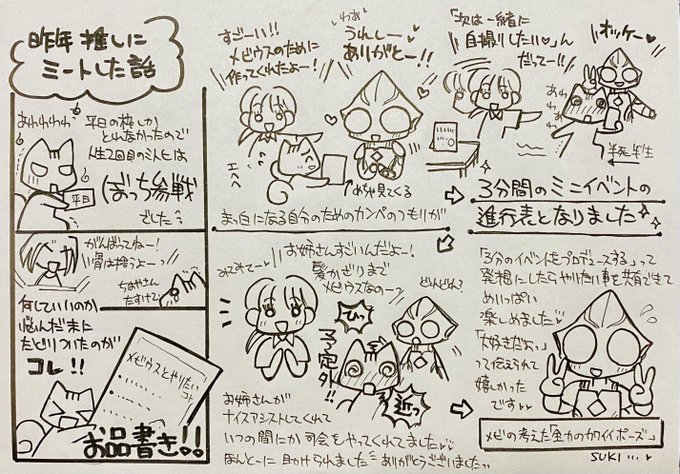 昨年推しに
ミートした話
あわわわわ
平日の枠しか
とれなかったので
人生2回目のミントヒは
平日
ぼっち参戦
でした
がんばってねー!
骨は拾うよーっ
たすけて
何していいのか
悩んだ末に
たどりついたのが
コレ!!
メビウスとやりたいコト
お品書き!!
すごーい!!
メビウスのために
作ってくれたよー!
わぁぁ
うれしー
ありがとー!!
エヘヘ
めちゃ見てくる
まっ白になる自分のためのカンペのつもりが
「次は一緒に
自撮りしたい♡」ん
だってー!!
オッケー♡
あわわ
半死半生
3分間のミニイベントの
進行表となりました
みてみてー
お姉さんすごいんだよー!
髪かざりまで
メビウスなのーっ
どれどれ?
ひっ
予定外!!
近っ
お姉さんが
ナイスアシストしてくれて
いつの間にか司会をやってくれてました
ほんとーに助けられました ありがとうございました
「3分のイベントをプロデュースする」って
発想にしたらやりたい事を共有できて
めいっぱい
楽しめました
「大好きだよっ」
って伝えられて
嬉しかった
です
メビの考えた「全力のカワイイポーズ」
SUKI…♥